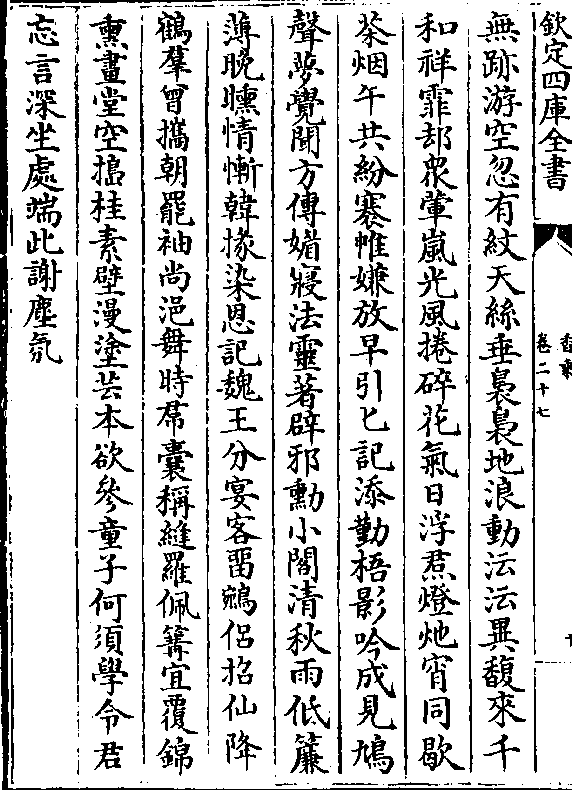 欽定四庫全書
香乘
卷二十七
十
無跡游空忽有紋天絲垂裊裊地浪動沄沄異馥來千
和祥霏却衆葷嵐光風捲碎花氣日浮焄燈灺宵同歇
茶烟午共紛褰帷嫌放早引匕記添勤梧影吟成見鳩
聲夢覺聞方傳媚寢法靈著辟邪勳小閣清秋雨低簾
薄晚曛情慚韓掾染恩記魏王分宴客留鵷侣招仙降
鶴羣曾攜朝罷袖尚浥舞時帬囊稱縫羅佩篝宜覆錦
熏畫堂空搗桂素壁漫塗芸本欲參童子何須學令君
忘言深坐處端此謝塵氛